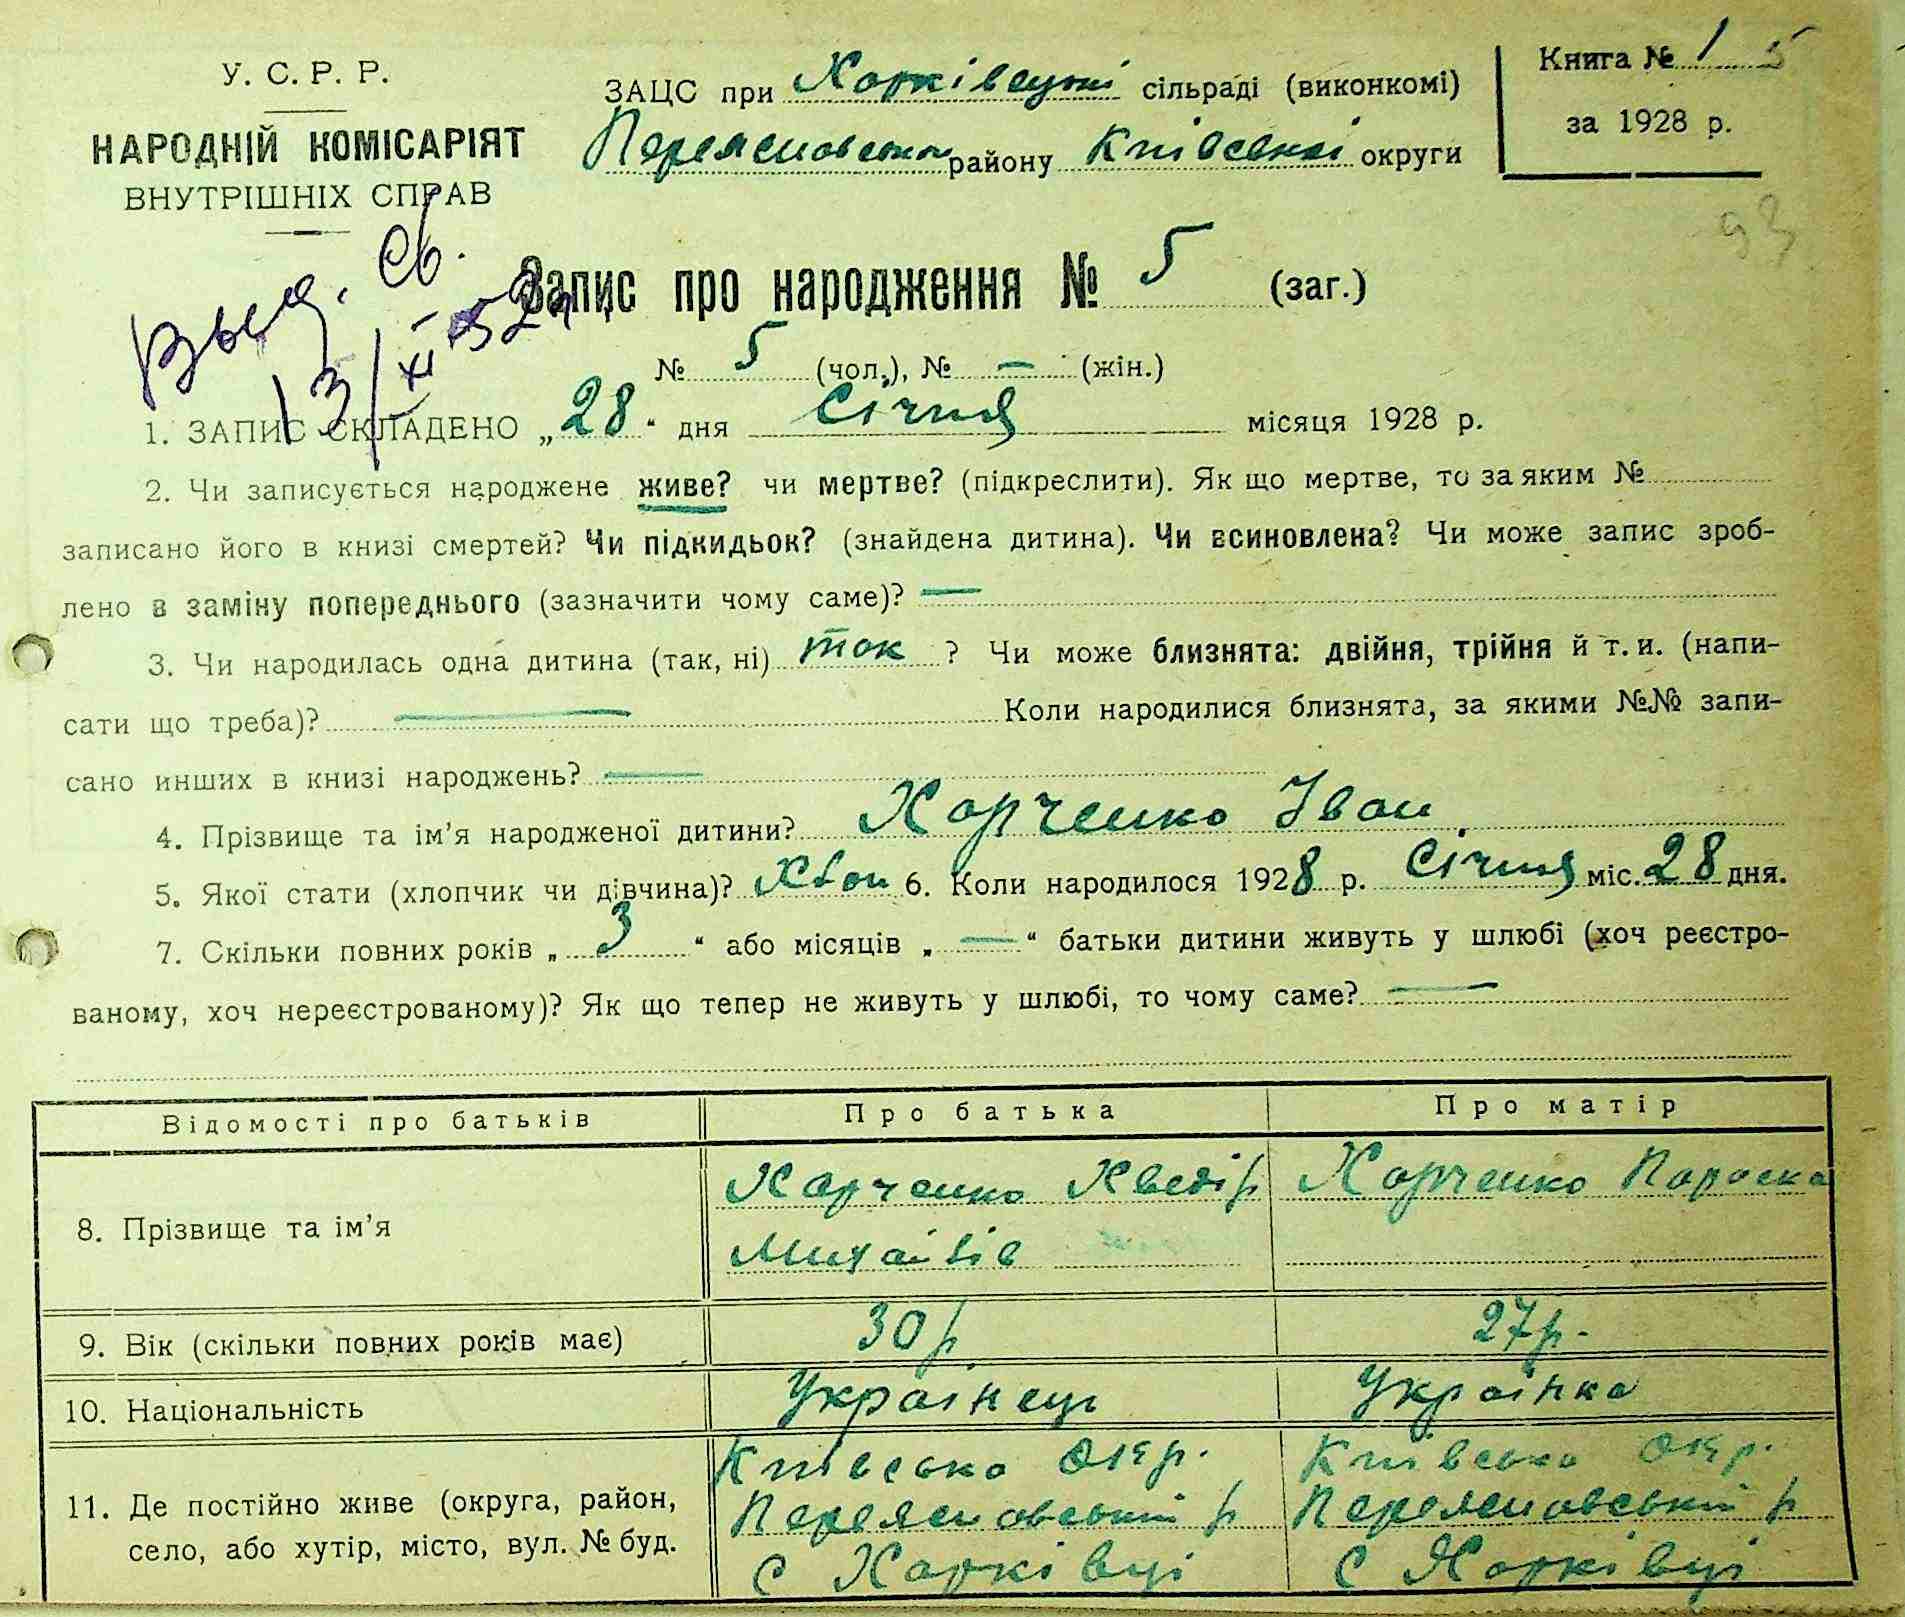 У. С. Р. Р.
НАРОДНІЙ КОМІСАРІЯТ
ВНУТРІШНІХ СПРАВ
ЗАЦС при Харківецькій сільраді (виконкомі)
Переяславського району Київської округи
Книга № 1 5
за 1928 р.
93
Выд. Св.
13/XI-52
Запис про народження № 5 (заг.)
№ 5 (чол.), № — (жін.)
1. ЗАПИС СКЛАДЕНО „28“ дня Січня місяця 1928 р.
2. Чи записується народжене живе? чи мертве? (підкреслити). Як що мертве, то за яким №
записано його в книзі смертей? Чи підкидьок? (знайдена дитина). Чи всиновлена? Чи може запис зроб-
лено в заміну попереднього (зазначити чому саме)? —
3. Чи народилась одна дитина (так, ні) так ? Чи може близнята: двійня, трійня й т. и. (напи-
сати що треба)? — Коли народилися близнята, за якими №№ запи-
сано инших в книзі народжень? —
4. Прізвище та ім’я народженої дитини? Харченко Іван
5. Якої стати (хлопчик чи дівчина)? Хлоп 6. Коли народилося 1928 р. Січня міс. 28 дня.
7. Скільки повних років „3“ або місяців „—“ батьки дитини живуть у шлюбі (хоч реєстро-
ваному, хоч нереєстрованому)? Як що тепер не живуть у шлюбі, то чому саме? —
Відомості про батьків Про батька Про матір
8. Прізвище та ім’я Харченко Хведір Харченко Параска
Михайлів
9. Вік (скільки повних років має) 30 р 27 р.
10. Національність Українець Українка
11. Де постійно живе (округа, район, село, або хутір, місто, вул. № буд.
Київська окр. Київська окр.
Переяславський р Переяславський р
с Харківці с Харківці